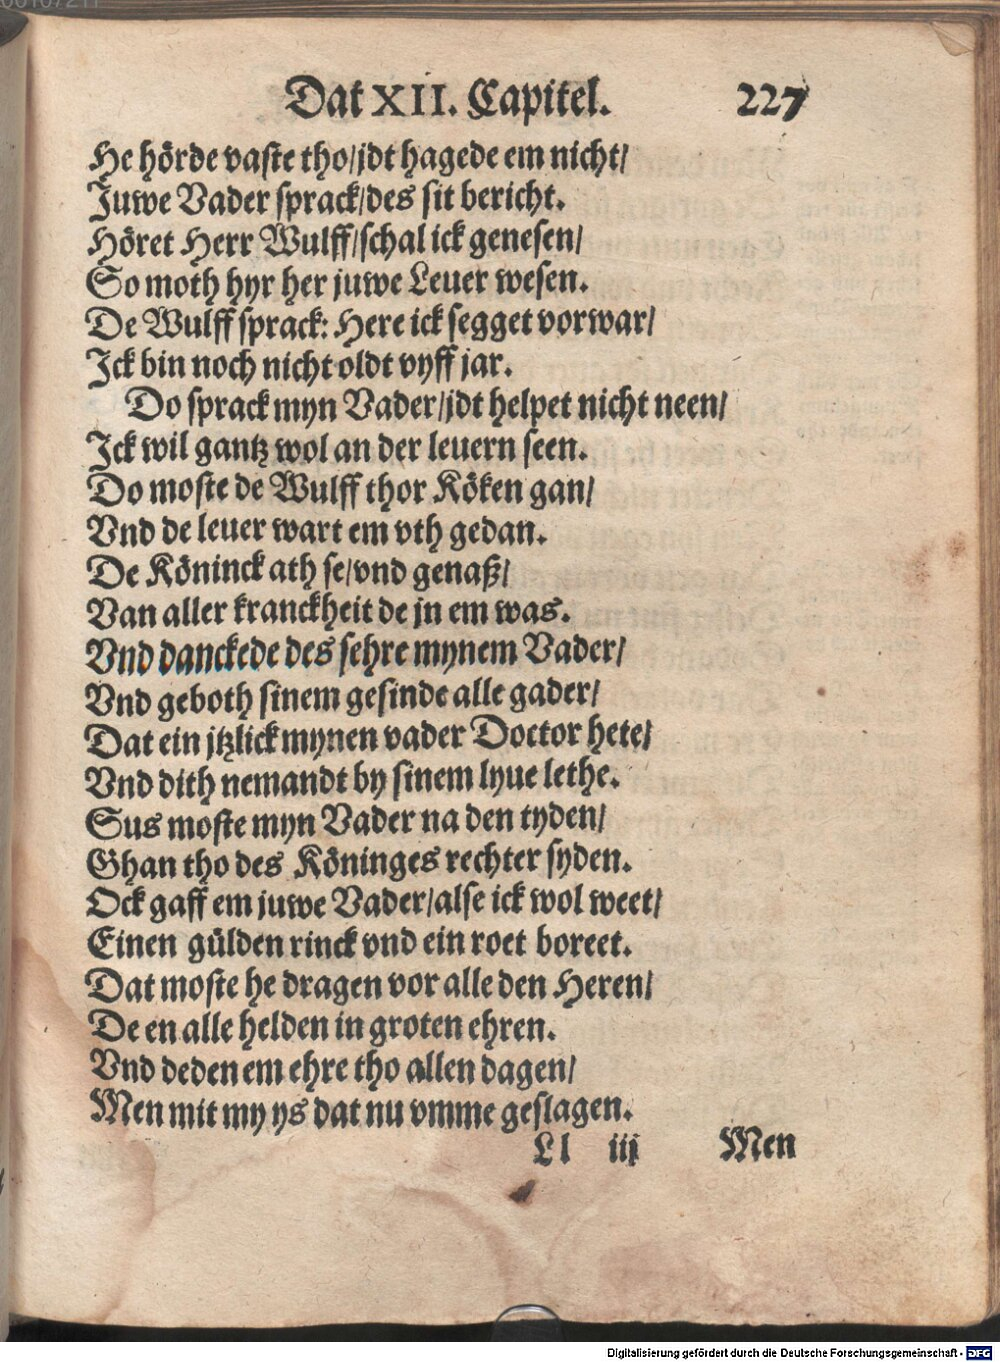 Dat XII. Capitel. 227
He hörde vaste tho/jdt hagede em nicht/
Juwe Vader sprack/des sit bericht.
Höret Herr Wulff/schal ick genesen/
So moth hyr her juwe Leuer wesen.
De Wulff sprack: Here ick segget vorwar/
Ick bin noch nicht oldt vyff jar.
Do sprack myn Vader/jdt helpet nicht neen/
Ick wil gantz wol an der leuern seen.
Do moste de Wulff thor Köken gan/
Vnd de leuer wart em vth gedan.
De Köninck ath se/vnd genaß/
Van aller kranckheit de jn em was.
Vnd danckede des sehre mynem Vader/
Vnd geboth sinem gesinde alle gader/
Dat ein jtzlick mynen vader Doctor hete/
Vnd dith nemandt by sinem lyue lethe.
Sus moste myn Vader na den tyden/
Ghan tho des Köninges rechter syden.
Ock gaff em juwe Vader/alse ick wol weet/
Einen gülden rinck vnd ein roet boreet.
Dat moste he dragen vor alle den Heren/
De en alle helden in groten ehren.
Vnd deden em ehre tho allen dagen/
Men mit my ys dat nu vmme geslagen.
Ll iij Men
Digitalisierung gefördert durch die Deutsche Forschungsgemeinschaft - DFG